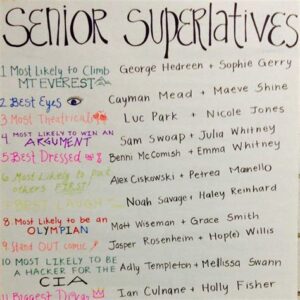 SENIOR SUPERLATIVES
1 Most Likely to Climb
MT EVEREST
George Hedreen + Sophie Gerry
2 BEST Eyes
Cayman Mead + Maeve Shine
3 Most Theatrical
Luc Park + Nicole Jones
4 MOST LIKELY TO WIN AN
ARGUMENT
Sam Swoap + Julia Whitney
5 BEST Dressed
Benni McComish + Emma Whitney
6 Most Likely to put
others FIRST!
Alex Ciskowski + Petrea Mamello
FIRST LAUGH
Noah Savage + Haley Reinhard
8 Most Likely to be an
OLYMPIAN
Matt Wiseman + Grace Smith
9 STAND OUT comic
Jasper Rosenheim + Hople Willis
10 MOST LIKELY TO BE
A HACKER FOR THE
CIA
Adly Templeton + Mellissa Swann
11 Biggest Divas
Ian Culnane + Holly Fisher